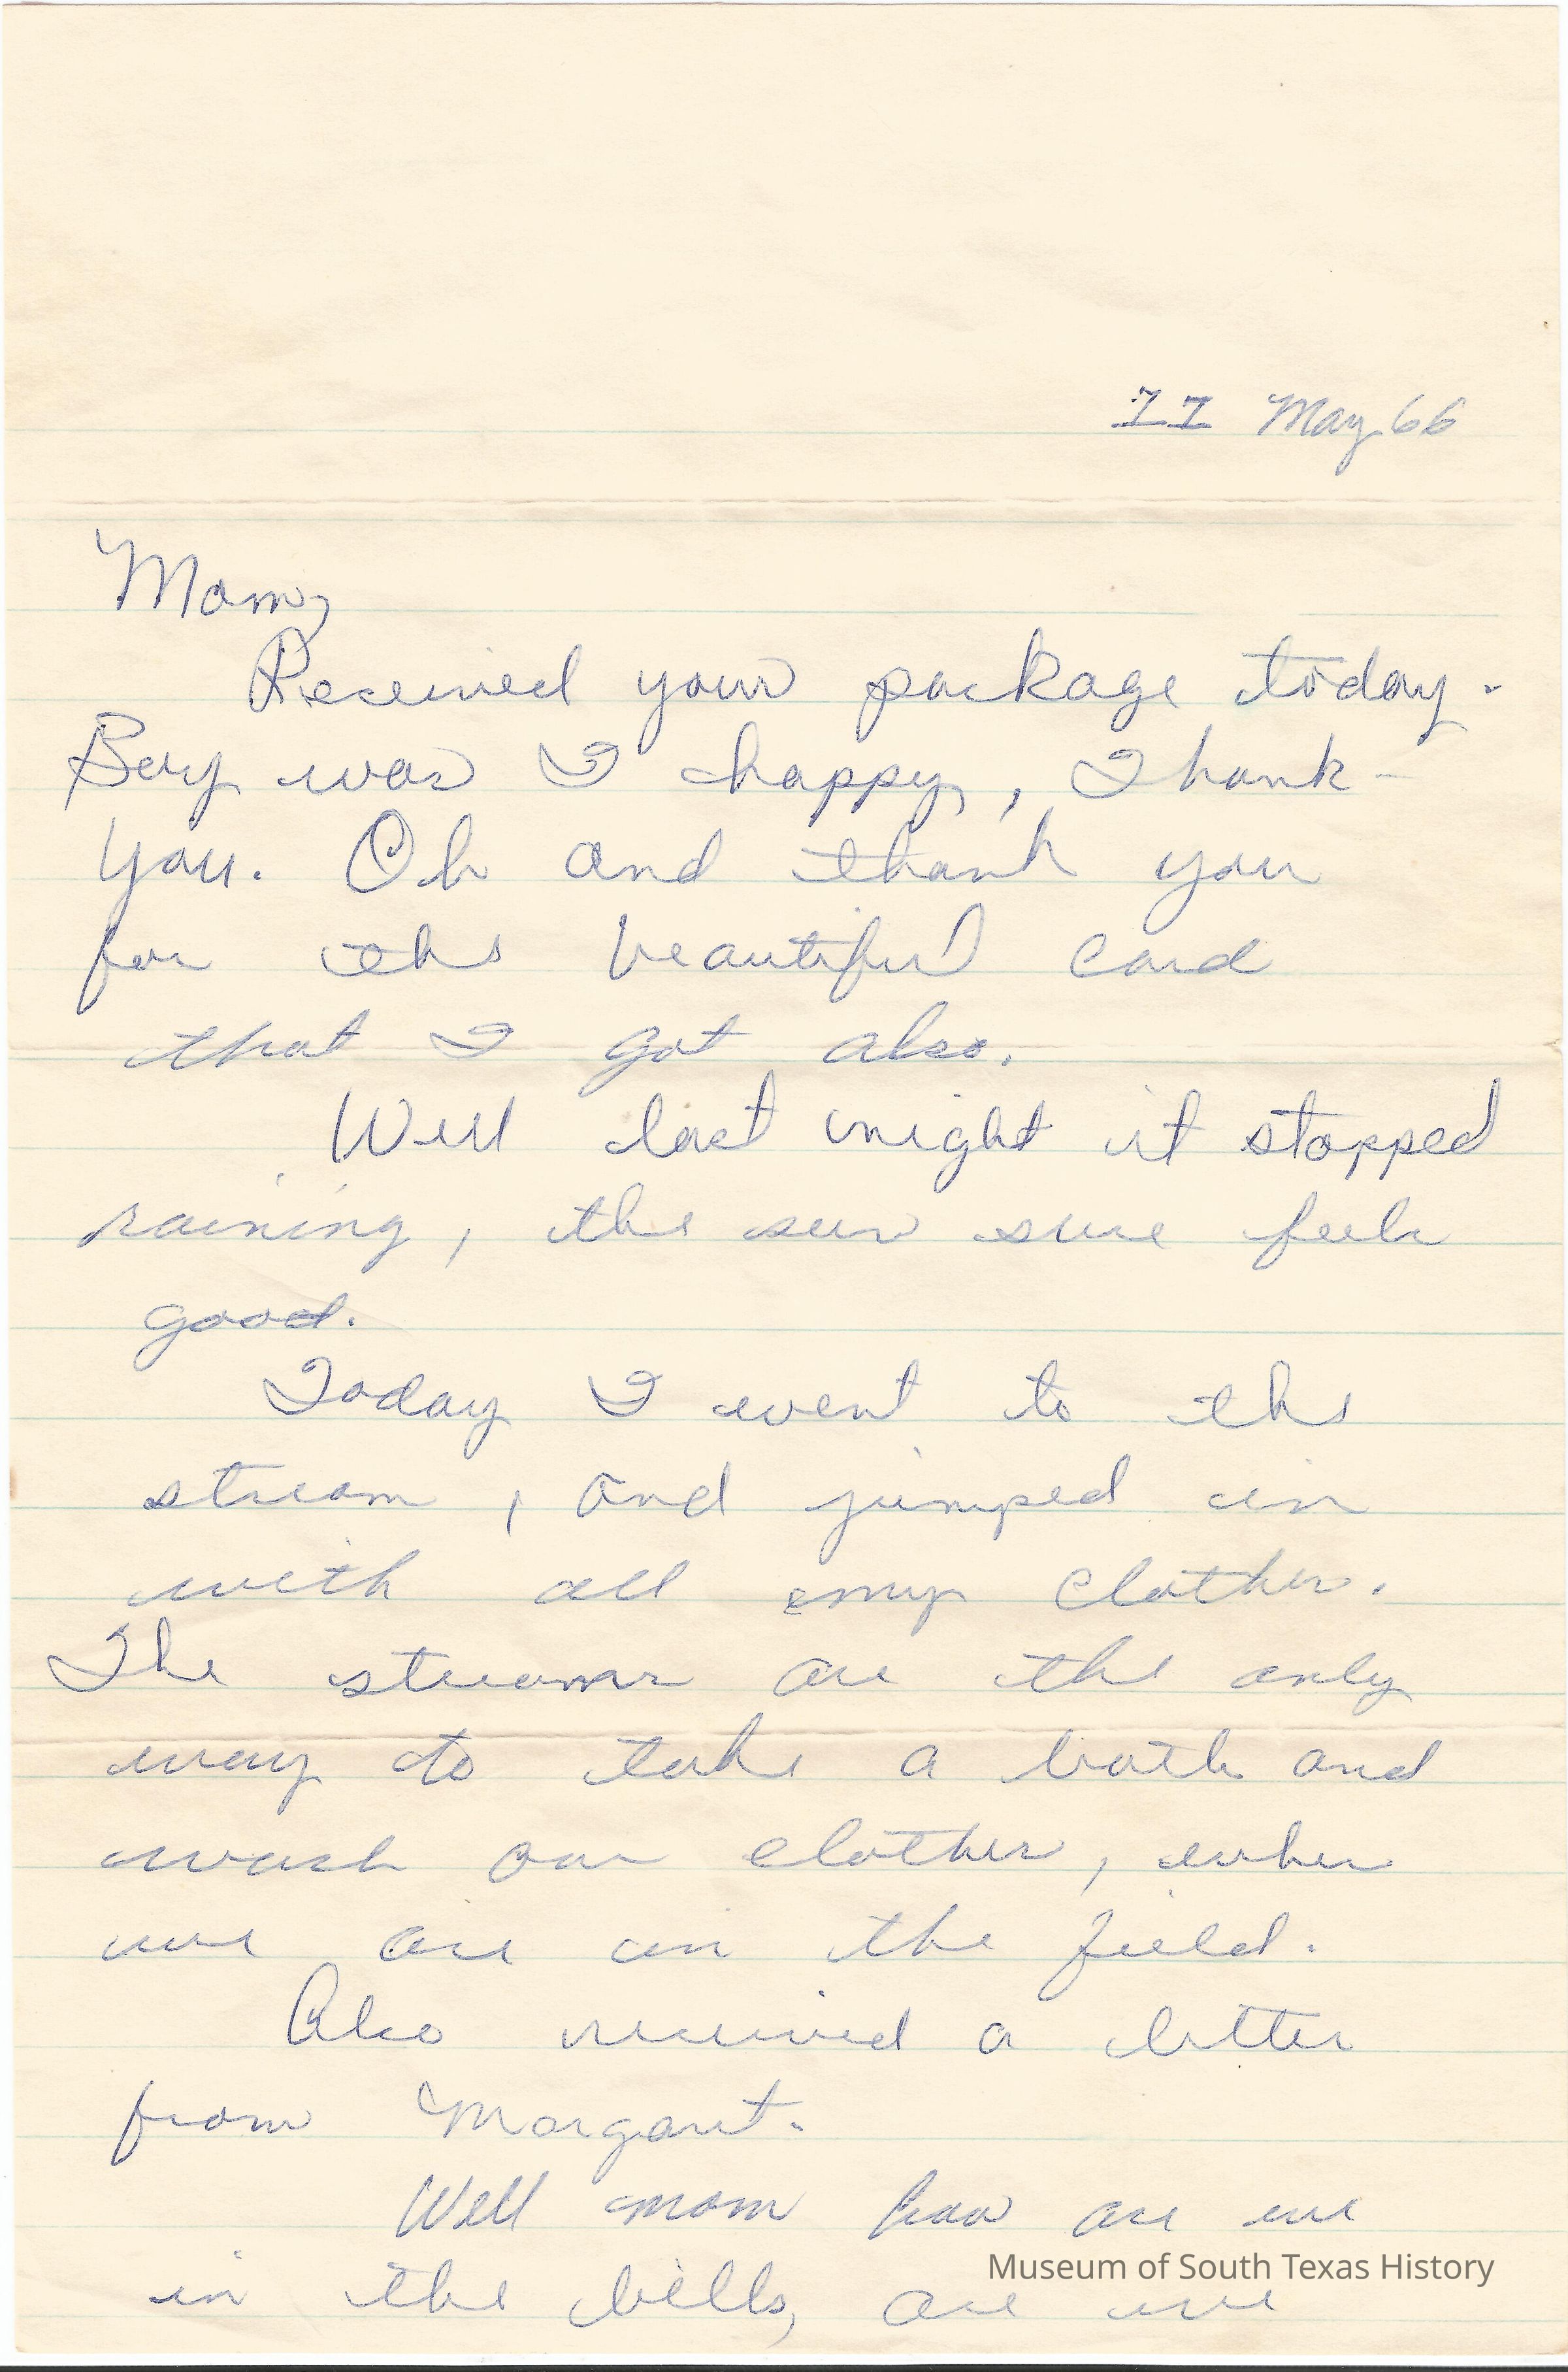 11 May 66
Mom,
Received your package today.
Boy was I happy, Thank-
you. Oh and thank you
for the beautiful card
that I got also.
Well last night it stopped
raining, the sun sure feels
good.
Today I went to the
stream, and jumped in
with all my clothes.
The streams are the only
way to take a bath and
wash our clothes, when
we are in the field.
Also received a letter
from Margaret.
Well mom how are we
in the bills, are we
Museum of South Texas History